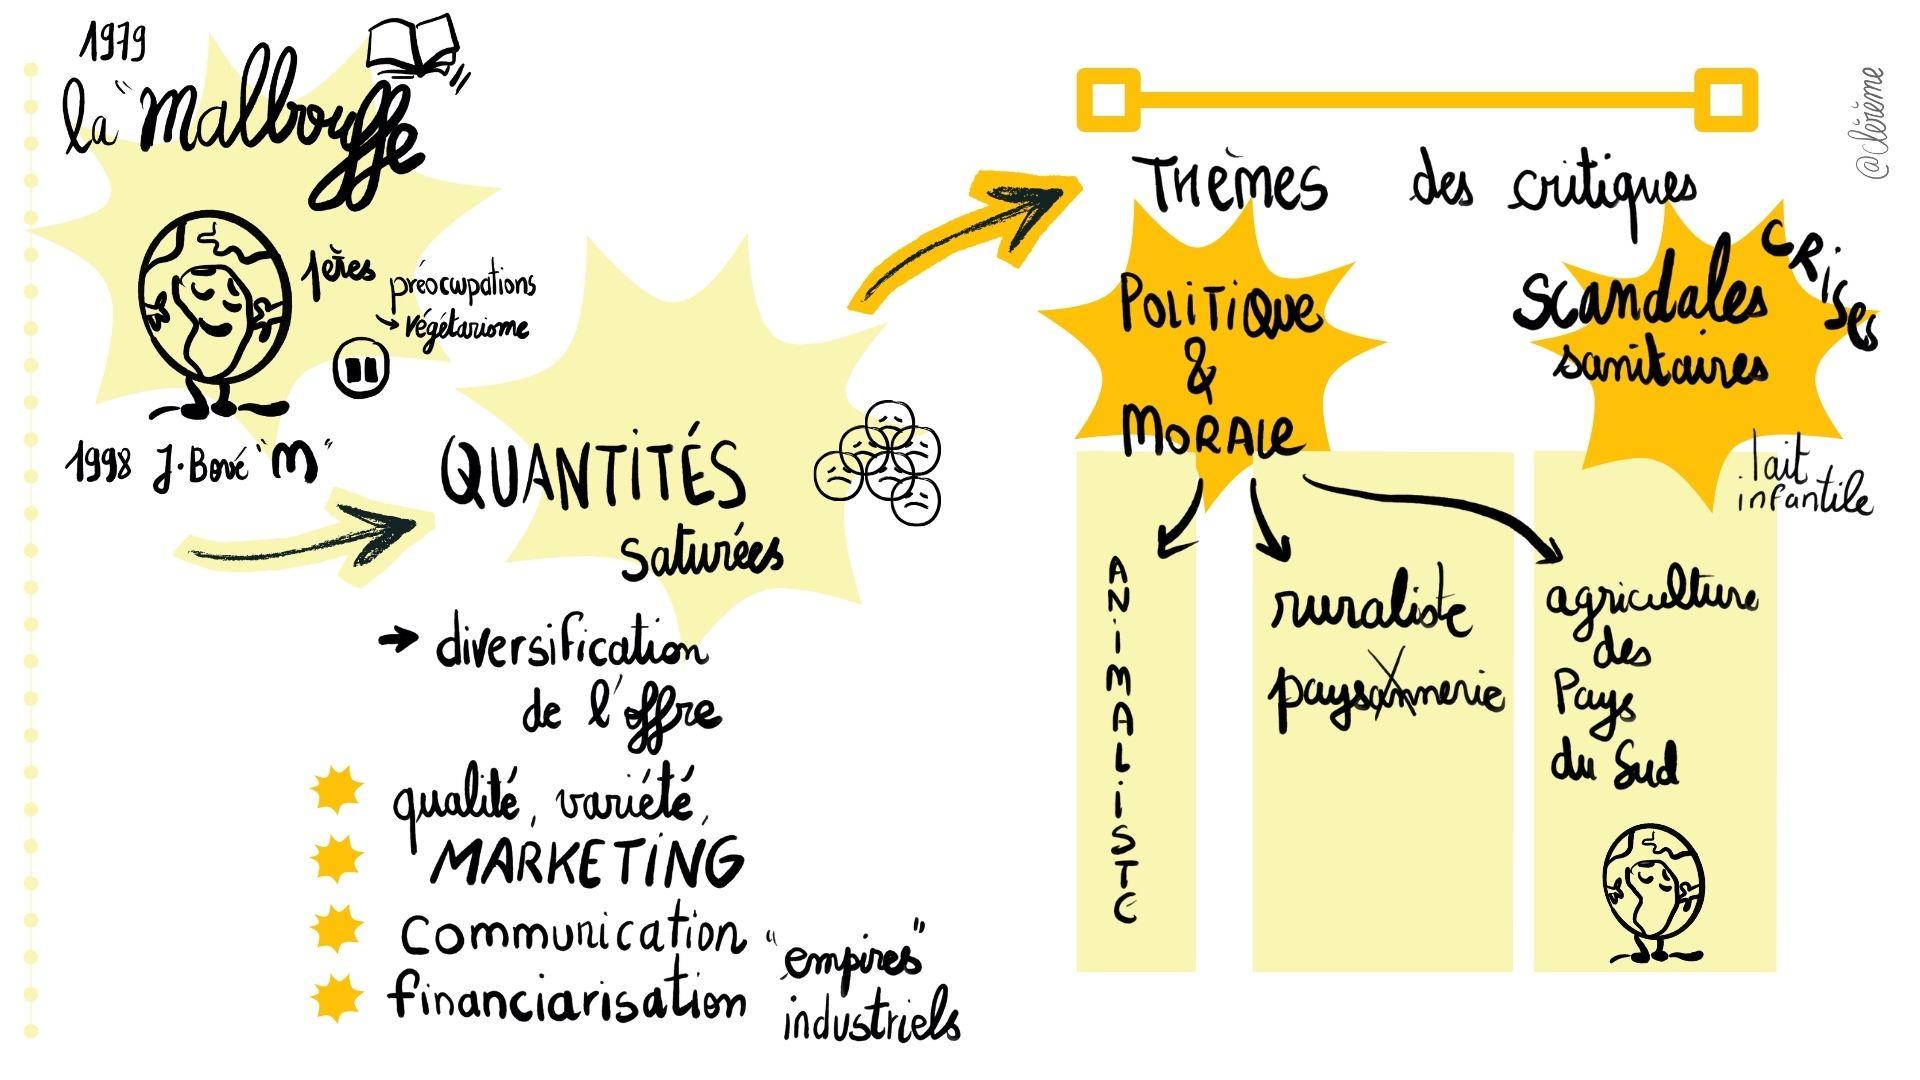 1979
la "Malbouffe
1ères préoccupations
végétarisme
1998 J. Bové "M"
QUANTITÉS
saturées
diversification
de l'offre
qualité, variété,
MARKETING
Communication
financiarisation
"empires"
industriels
THÈMES des critiques
POLITIQUE
&
MORALE
ANIMALISTE
ruraliste
paysannerie
SCANDALES
sanitaires
CRISES
lait
infantile
agriculture
des
Pays
du Sud
@clérème